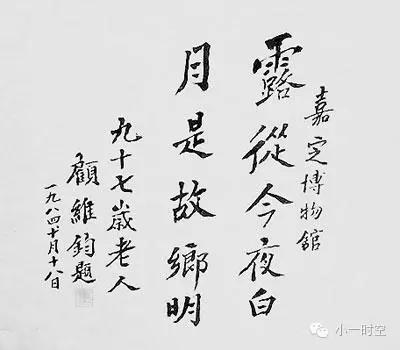 嘉定博物館
露從今夜白
月是故鄉明
九十七歲老人
顧維鈞題
一九八四十月十八日
小一时空